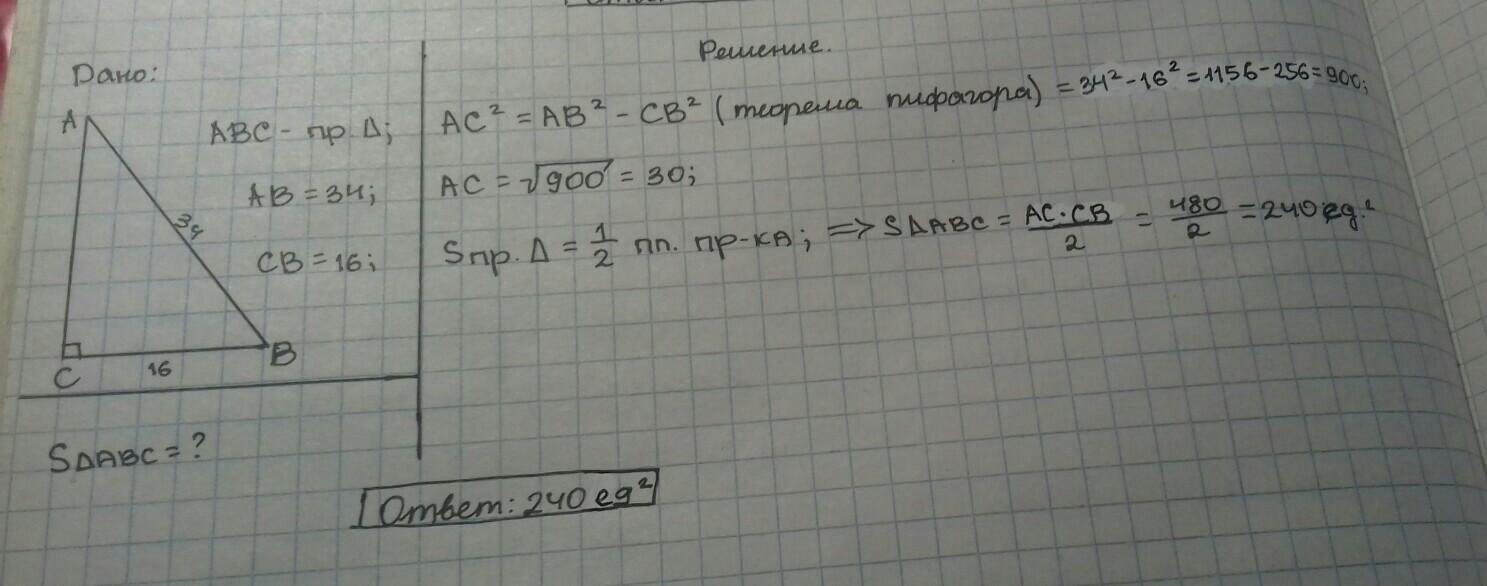 Дано:
A
ABC - пр. Δ;
AB = 34;
34
CB = 16;
C
16
B
SΔABC = ?
Решение.
AC² = AB² - CB² (теорема пифагора) = 34² - 16² = 1156 - 256 = 900;
AC = √900 = 30;
Sпр. Δ = 1/2 пл. пр-ка; => SΔABC = AC·CB/2 = 480/2 = 240 ед.²
Ответ: 240 ед²